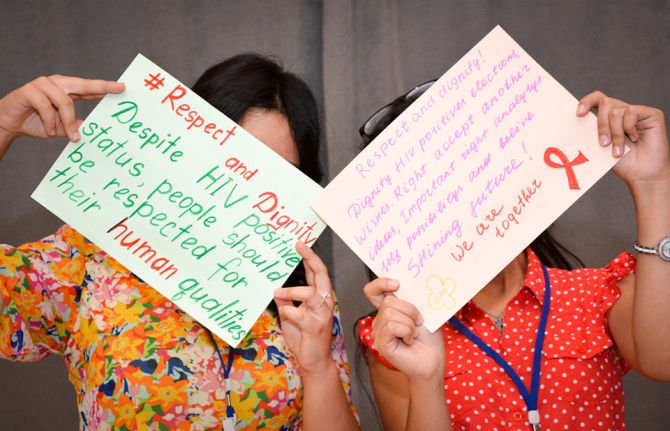 # Respect and Dignity
Despite HIV positive
status, people should
be respected for
their human qualities
Respect and dignity!
Dignity HIV positives elections,
Wishes. Right accept another
ideas, Important right analysys
my possibilitys and belive
Shining future!
We are
together